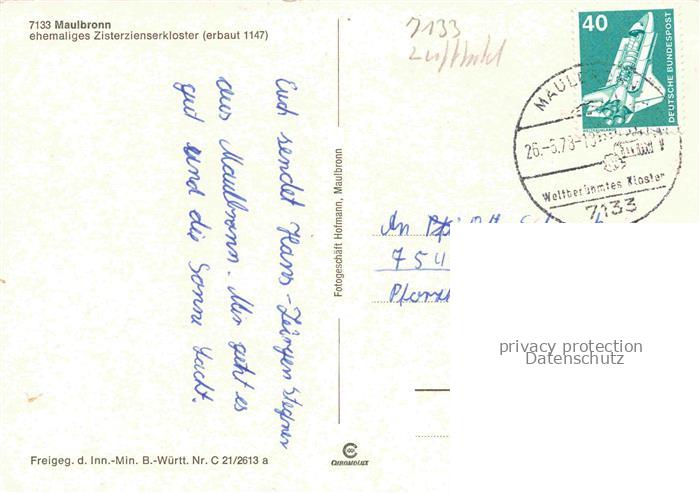 7133 Maulbronn
ehemaliges Zisterzienserkloster (erbaut 1147)
7133
Luftbild
40
DEUTSCHE BUNDESPOST
26.-6.78-
Weltberühmtes Kloster
7133
Euch sendet Hans-Jürgen
aus Maulbronn. Mir geht es
gut und die Sonne lacht.
Fotogeschäft Hofmann, Maulbronn
An
754
privacy protection
Datenschutz
Freigeg. d. Inn.-Min. B.-Württ. Nr. C 21/2613 a
CHROMOLUX